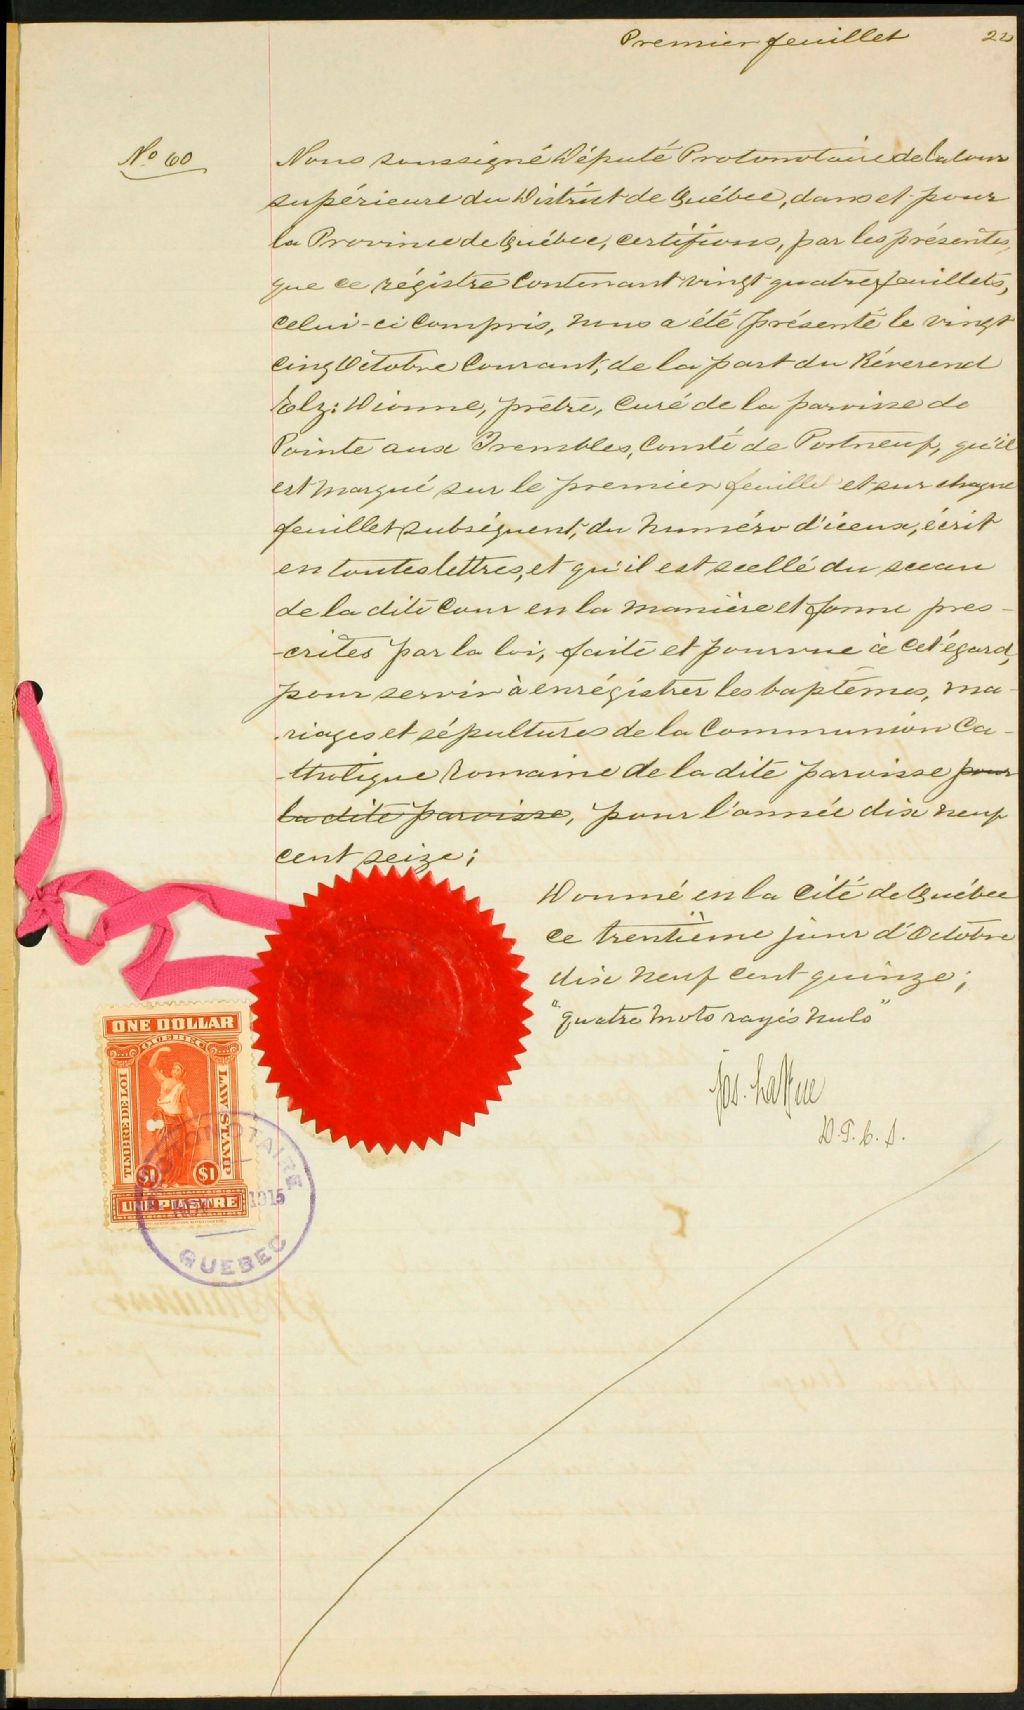 Premier feuillet
No 60
Nous soussigné Député Protonotaire de la Cour
supérieure du District de Québec, dans et pour
la Province de Québec, certifions, par les présentes,
que ce régistre contenant vingt quatre feuillets,
celui-ci compris, nous a été présenté le vingt
cinq Octobre Courant, de la part du Réverend
Elz: Dionne, prêtre, Curé de la paroisse de
Pointe aux Trembles, Comté de Portneuf, qu'il
est marqué sur le premier feuillet et sur chaque
feuillet subséquent, du numéro d'iceux, écrit
en toutes lettres, et qu'il est scellé du sceau
de la dite Cour en la manière et forme pres-
-crites par la loi, faite et pourvue à cet égard,
pour servir à enrégistrer les baptêmes, ma-
-riages et sépultures de la Communion Ca-
-tholique Romaine de la dite paroisse pour
la dite paroisse, pour l'année dix neuf
cent seize;
Donné en la Cité de Québec
ce trentième jour d'Octobre
dix neuf cent quinze;
"quatre mots rayés nuls"
Jos. LaRue
D.P.C.S.
ONE DOLLAR
QUEBEC
TIMBRE DE LOI
LAW STAMP
$1
$1
UNE PIASTRE
PROTONOTAIRE
NOV 1915
QUEBEC